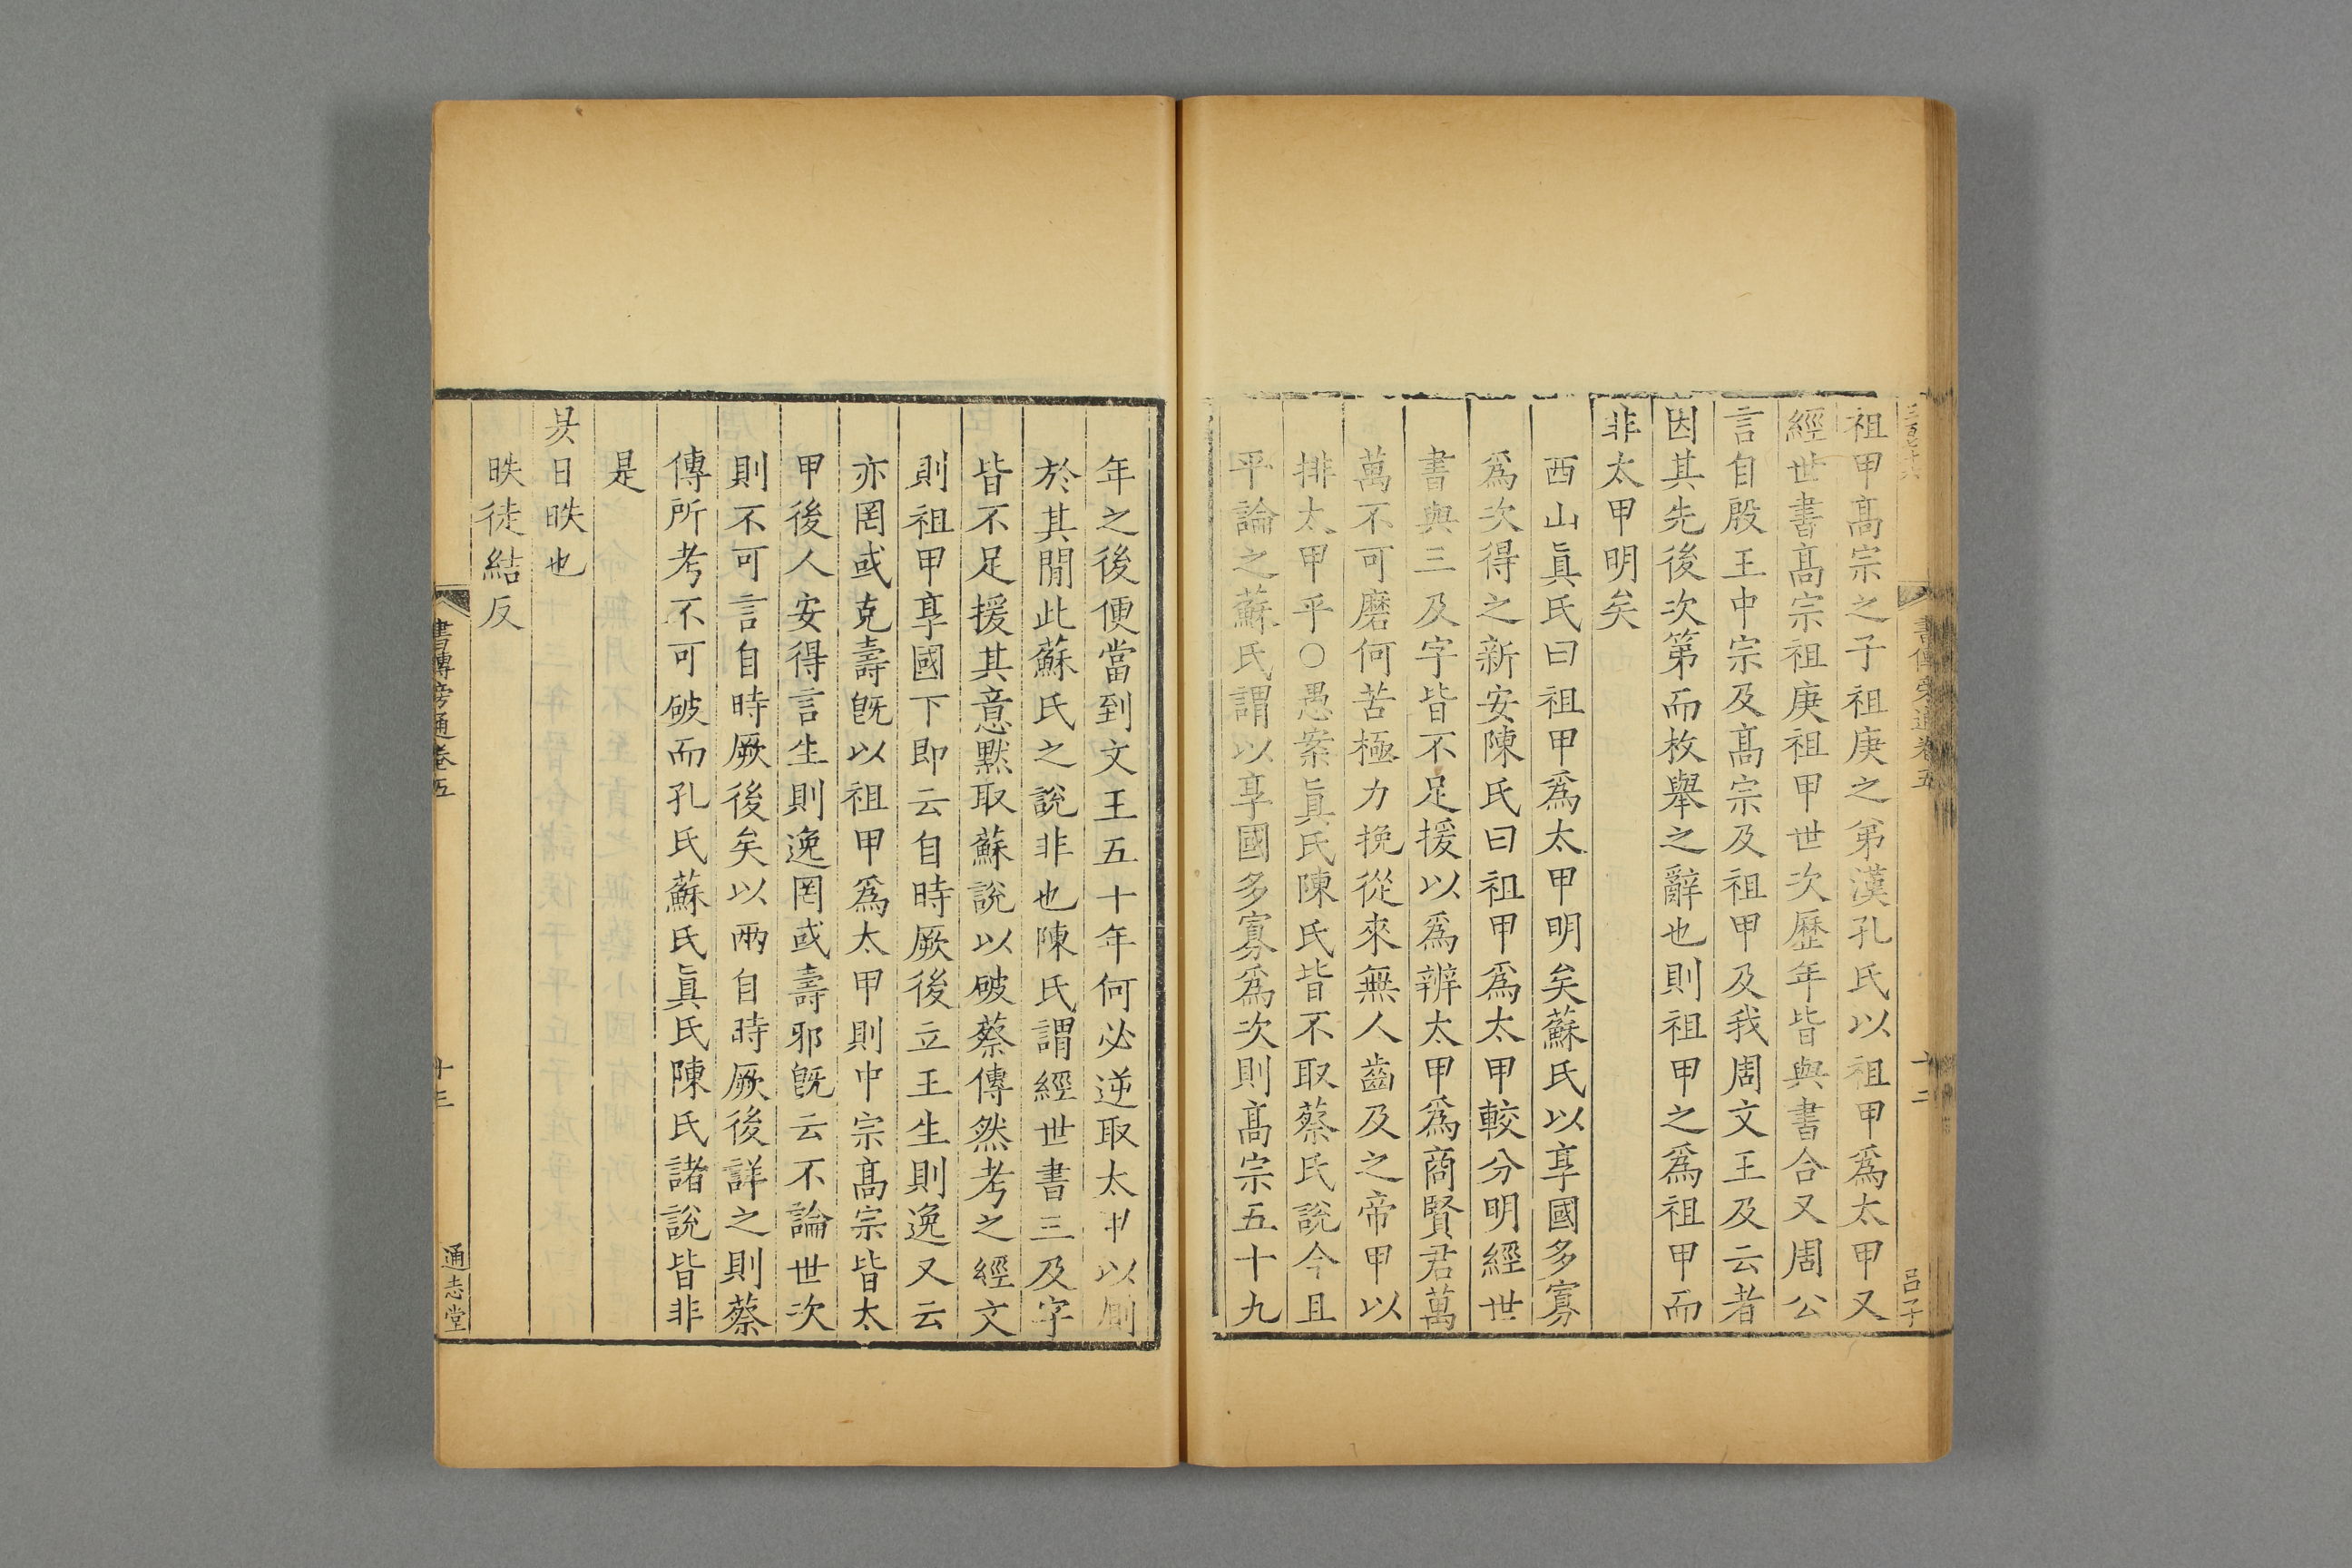 祖甲髙宗之子祖庚之弟漢孔氏以祖甲爲太甲又
經世書髙宗祖庚祖甲世次歷年皆與書合又周公
言自殷王中宗及髙宗及祖甲及我周文王及云者
因其先後次第而枚舉之辭也則祖甲之爲祖甲而
非太甲明矣
西山眞氏曰祖甲爲太甲明矣蘇氏以享國多寡
爲次得之新安陳氏曰祖甲爲太甲較分明經世
書與三及字皆不足援以爲辨太甲爲商賢君萬
萬不可磨何苦極力挽從來無人齒及之帝甲以
排太甲乎○愚案眞氏陳氏皆不取蔡氏說今且
平論之蘇氏謂以享國多寡爲次則髙宗五十九
書傳旁通卷五
十二
呂子
年之後便當到文王五十年何必逆取太甲以厠
於其閒此蘇氏之說非也陳氏謂經世書三及字
皆不足援其意黙取蘇說以破蔡傳然考之經文
則祖甲享國下即云自時厥後立王生則逸又云
亦罔或克壽旣以祖甲爲太甲則中宗髙宗皆太
甲後人安得言生則逸罔或壽邪旣云不論世次
則不可言自時厥後矣以兩自時厥後詳之則蔡
傳所考不可破而孔氏蘇氏眞氏陳氏諸說皆非
是
昃日昳也
昳徒結反
書傳旁通卷五
十三
通志堂